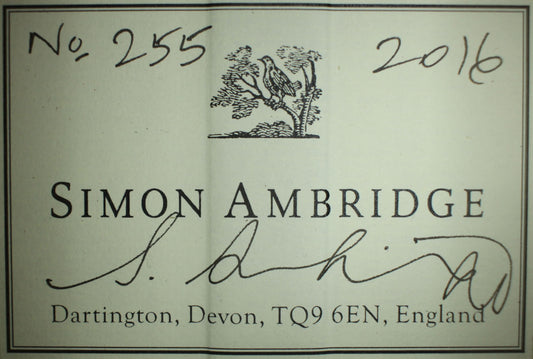 No. 255 2016
SIMON AMBRIDGE
S. Ambridge
Dartington, Devon, TQ9 6EN, England